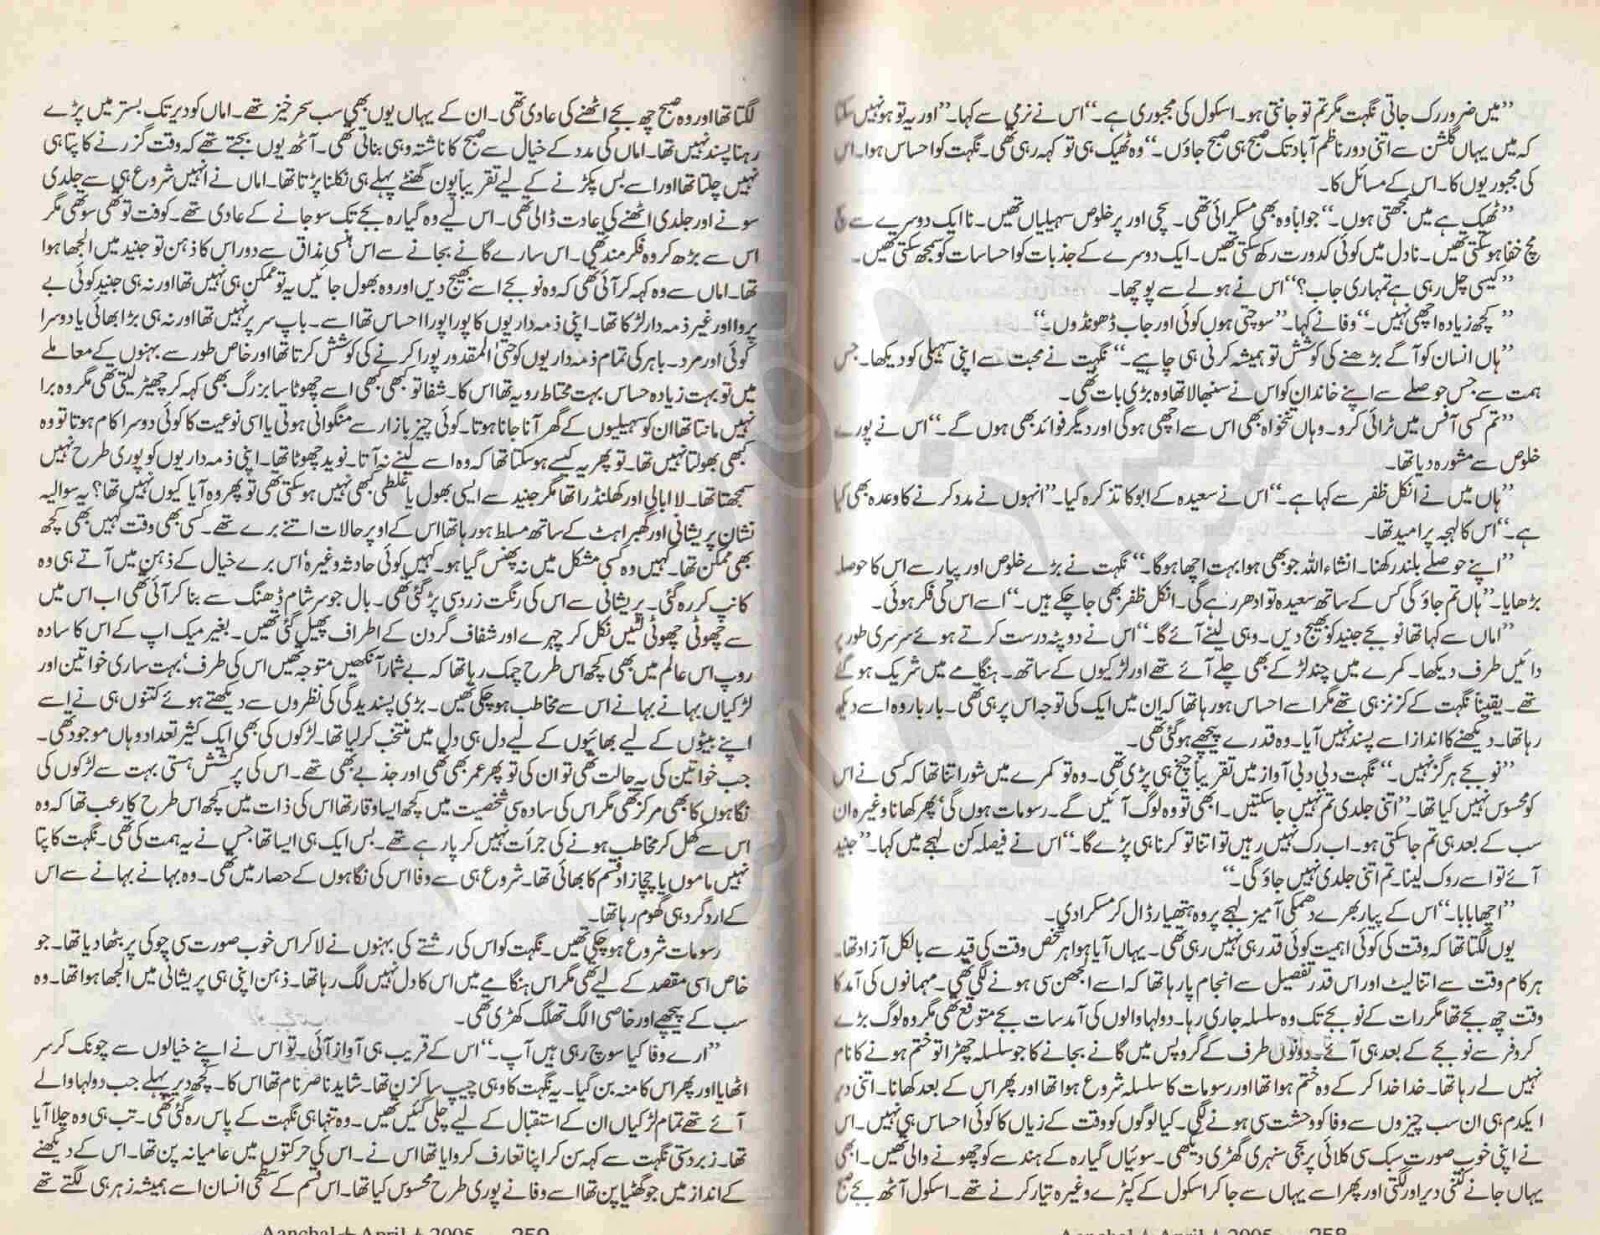 ”میں ضرور رک جاتی نگہت مگر تم تو جانتی ہو۔ اسکول کی مجبوری ہے۔“ اس نے نرمی سے کہا۔ ”اور یہ تو ہو نہیں سکتا
کہ میں یہاں گلشن سے اتنی دور ناظم آباد تک صبح ہی صبح جاؤں۔“ وہ ٹھیک ہی تو کہہ رہی تھی۔ نگہت کو احساس ہوا۔ اس
کی مجبوریوں کا۔ اس کے مسائل کا۔
”ٹھیک ہے میں سمجھتی ہوں۔“ جواباً وہ بھی مسکرائی تھی۔ سچی اور پر خلوص سہیلیاں تھیں۔ نا ایک دوسرے سے سچ
مچ خفا ہو سکتی تھیں۔ نا دل میں کوئی کدورت رکھ سکتی تھیں۔ ایک دوسرے کے جذبات کو احساسات کو سمجھ سکتی تھیں۔
”کیسی چل رہی ہے تمہاری جاب؟“ اس نے ہولے سے پوچھا۔
”کچھ زیادہ اچھی نہیں۔“ وفا نے کہا۔ ”سوچتی ہوں کوئی اور جاب ڈھونڈوں۔“
”ہاں انسان کو آگے بڑھنے کی کوشش تو ہمیشہ کرنی ہی چاہیے۔“ نگہت نے محبت سے اپنی سہیلی کو دیکھا۔ جس
ہمت سے جس حوصلے سے اپنے خاندان کو اس نے سنبھالا تھا وہ بڑی بات تھی۔
”تم کسی آفس میں ٹرائی کرو۔ وہاں تنخواہ بھی اس سے اچھی ہوگی اور دیگر فوائد بھی ہوں گے۔“ اس نے پورے
خلوص سے مشورہ دیا تھا۔
”ہاں میں نے انکل ظفر سے کہا ہے۔“ اس نے سعیدہ کے ابو کا تذکرہ کیا۔ ”انہوں نے مدد کرنے کا وعدہ بھی کیا
ہے۔“ اس کا لہجہ پر امید تھا۔
”اپنے حوصلے بلند رکھنا۔ انشاء اللہ جو بھی ہوا بہت اچھا ہوگا۔“ نگہت نے بڑے خلوص اور پیار سے اس کا حوصلہ
بڑھایا۔ ”ہاں تم جاؤ گی کس کے ساتھ سعیدہ تو ادھر رہے گی۔ انکل ظفر بھی جا چکے ہیں۔“ اسے اس کی فکر ہوئی۔
”اماں سے کہا تھا نو بجے جنید کو بھیج دیں۔ وہی لینے آئے گا۔“ اس نے دوپٹہ درست کرتے ہوئے سرسری طور پر
دائیں طرف دیکھا۔ کمرے میں چند لڑکے بھی چلے آئے تھے اور لڑکیوں کے ساتھ۔ ہنگامے میں شریک ہو گئے
تھے۔ یقیناً نگہت کے کزنز ہی تھے مگر اسے احساس ہو رہا تھا کہ ان میں ایک کی توجہ اس پر ہی تھی۔ بار بار وہ اسے دیکھ
رہا تھا۔ دیکھنے کا انداز اسے پسند نہیں آیا۔ وہ قدرے پیچھے ہو گئی تھی۔
”نو بجے ہرگز نہیں۔“ نگہت دبی دبی آواز میں تقریباً چیخ ہی پڑی تھی۔ وہ تو کمرے میں شور اتنا تھا کہ کسی نے اس
کو محسوس نہیں کیا تھا۔ ”اتنی جلدی تم نہیں جا سکتیں۔ ابھی تو وہ لوگ آئیں گے۔ رسومات ہوں گی‘ پھر کھانا وغیرہ ان
سب کے بعد ہی تم جا سکتی ہو۔ اب رک نہیں رہیں تو اتنا تو کرنا ہی پڑے گا۔“ اس نے فیصلہ کن لہجے میں کہا۔ ”جنید
آئے تو اسے روک لینا۔ تم اتنی جلدی نہیں جاؤ گی۔“
”اچھا بابا۔“ اس کے پیار بھرے دھمکی آمیز لہجے پر وہ ہتھیار ڈال کر مسکرا دی۔
یوں لگتا تھا کہ وقت کی کوئی اہمیت کوئی قدر ہی نہیں رہی تھی۔ یہاں آیا ہوا ہر شخص وقت کی قید سے بالکل آزاد تھا۔
ہر کام وقت سے اتنا لیٹ اور اس قدر تفصیل سے انجام پا رہا تھا کہ اسے الجھن سی ہونے لگی تھی۔ مہمانوں کی آمد کا
وقت چھ بجے تھا مگر رات کے نو بجے تک وہ سلسلہ جاری رہا۔ دولہا والوں کی آمد سات بجے متوقع تھی مگر وہ لوگ بڑے
کروفر سے نو بجے کے بعد ہی آئے۔ دونوں طرف کے گروپس میں گانے بجانے کا جو سلسلہ چھڑا تو ختم ہونے کا نام
نہیں لے رہا تھا۔ خدا خدا کر کے وہ ختم ہوا تھا اور رسومات کا سلسلہ شروع ہوا تھا اور پھر اس کے بعد کھانا۔ اتنی دیر
ایکدم ہی ان سب چیزوں سے وفا کو وحشت سی ہونے لگی۔ کیا لوگوں کو وقت کے زیاں کا کوئی احساس ہی نہیں۔ اس
نے اپنی خوب صورت سبک سی کلائی پر بجی سنہری گھڑی دیکھی۔ سوئیاں گیارہ کے ہندسے کو چھونے والی تھیں۔ ابھی
یہاں جانے کتنی دیر اور لگتی اور پھر اسے یہاں سے جا کر اسکول کے کپڑے وغیرہ تیار کرنے تھے۔ اسکول آٹھ بجے صبح
Aanchal + April + 2005 258
لگتا تھا اور وہ صبح چھ بجے اٹھنے کی عادی تھی۔ ان کے یہاں یوں بھی سب سحر خیز تھے۔ اماں کو دیر تک بستر میں پڑے
رہنا پسند نہیں تھا۔ اماں کی مدد کے خیال سے صبح کا ناشتہ وہی بناتی تھی۔ آٹھ یوں بجتے تھے کہ وقت گزرنے کا پتا ہی
نہیں چلتا تھا اور اسے بس پکڑنے کے لیے تقریباً پون گھنٹے پہلے ہی نکلنا پڑتا تھا۔ اماں نے انہیں شروع ہی سے جلدی
سونے اور جلدی اٹھنے کی عادت ڈالی تھی۔ اس لیے وہ گیارہ بجے تک سو جانے کے عادی تھے۔ کوفت تو تھی سو تھی مگر
اس سے بڑھ کر وہ فکرمند تھی۔ اس سارے گانے بجانے سے اس ہنسی مذاق سے دور اس کا ذہن تو جنید میں الجھا ہوا
تھا۔ اماں سے وہ کہہ کر آئی تھی کہ وہ نو بجے اسے بھیج دیں اور وہ بھول جائیں یہ تو ممکن ہی نہیں تھا اور نہ ہی جنید کوئی بے
پروا اور غیر ذمہ دار لڑکا تھا۔ اپنی ذمہ داریوں کا پورا پورا احساس تھا اسے۔ باپ سر پر نہیں تھا اور نہ ہی بڑا بھائی یا دوسرا
کوئی اور مرد۔ باہر کی تمام ذمہ داریوں کو حتی المقدور پورا کرنے کی کوشش کرتا تھا اور خاص طور سے بہنوں کے معاملے
میں تو بہت زیادہ حساس بہت محتاط رویہ تھا اس کا۔ شفا تو کبھی کبھی اسے چھوٹا سا بزرگ بھی کہہ کر چھیڑ لیتی تھی مگر وہ برا
نہیں مانتا تھا ان کو سہیلیوں کے گھر آنا جانا ہوتا۔ کوئی چیز بازار سے منگوانی ہوتی یا اسی نوعیت کا کوئی دوسرا کام ہوتا تو وہ
کبھی بھولتا نہیں تھا۔ تو پھر یہ کیسے ہو سکتا تھا کہ وہ اسے لینے نہ آتا۔ نوید چھوٹا تھا۔ اپنی ذمہ داریوں کو پوری طرح نہیں
سمجھتا تھا۔ لا ابالی اور کھلنڈرا تھا مگر جنید سے ایسی بھول یا غلطی کبھی نہیں ہو سکتی تھی تو پھر وہ آیا کیوں نہیں تھا؟ یہ سوالیہ
نشان پریشانی اور گھبراہٹ کے ساتھ مسلط ہو رہا تھا اس کے اوپر حالات اتنے برے تھے۔ کسی بھی وقت کہیں بھی کچھ
بھی ممکن تھا۔ کہیں وہ کسی مشکل میں نہ پھنس گیا ہو۔ کہیں کوئی حادثہ وغیرہ‘ اس برے خیال کے ذہن میں آتے ہی وہ
کانپ کر رہ گئی۔ پریشانی سے اس کی رنگت زرد سی پڑ گئی تھی۔ بال جو سر شام ڈھنگ سے بنا کر آئی تھی اب اس میں
سے چھوٹی چھوٹی لٹیں نکل کر چہرے اور شفاف گردن کے اطراف پھیل گئی تھیں۔ بغیر میک اپ کے اس کا سادہ
روپ اس عالم میں بھی کچھ اس طرح چمک رہا تھا کہ بے شمار آنکھیں متوجہ تھیں اس کی طرف‘ بہت ساری خواتین اور
لڑکیاں بہانے بہانے اس سے مخاطب ہو چکی تھیں۔ بڑی پسندیدگی کی نظروں سے دیکھتے ہوئے کتنوں ہی نے اسے
اپنے بیٹوں کے لیے بھائیوں کے لیے دل ہی دل میں منتخب کر لیا تھا۔ لڑکوں کی بھی ایک کثیر تعداد وہاں موجود تھی۔
جب خواتین کی یہ حالت تھی تو ان کی تو پھر عمر بھی تھی اور جذبے بھی تھے۔ اس کی پر کشش ہستی بہت سے لڑکوں کی
نگاہوں کا بھی مرکز تھی مگر اس کی سادہ سی شخصیت میں کچھ ایسا وقار تھا اس کی ذات میں کچھ اس طرح کا رعب تھا کہ وہ
اس سے کھل کر مخاطب ہونے کی جرأت نہیں کر پا رہے تھے۔ بس ایک ہی ایسا تھا جس نے یہ ہمت کی تھی۔ نگہت کا پتا
نہیں ماموں یا چچا زاد قسم کا بھائی تھا۔ شروع ہی سے وفا اس کی نگاہوں کے حصار میں تھی۔ وہ بہانے بہانے سے اس
کے ارد گرد ہی گھوم رہا تھا۔
رسومات شروع ہو چکی تھیں۔ نگہت کو اس کی رشتے کی بہنوں نے لا کر اس خوب صورت سی چوکی پر بٹھا دیا تھا۔ جو
خاص اسی مقصد کے لیے تھی مگر اس ہنگامے میں اس کا دل نہیں لگ رہا تھا۔ ذہن اپنی ہی پریشانی میں الجھا ہوا تھا۔ وہ
سب کے پیچھے اور خاصی الگ تھلگ کھڑی تھی۔
”ارے وفا کیا سوچ رہی ہیں آپ۔“ اس کے قریب ہی آواز آئی۔ تو اس نے اپنے خیالوں سے چونک کر سر
اٹھایا اور پھر اس کا منہ بن گیا۔ یہ نگہت کا وہی چیپ سا کزن تھا۔ شاید ناصر نام تھا اس کا۔ کچھ دیر پہلے جب دولہا والے
آئے تھے تمام لڑکیاں ان کے استقبال کے لیے چلی گئیں تھیں۔ وہ تنہا ہی نگہت کے پاس رہ گئی تھی۔ تب ہی وہ چلا آیا
تھا۔ زبردستی نگہت سے کہہ سن کر اپنا تعارف کروایا تھا اس نے۔ اس کی حرکتوں میں عامیانہ پن تھا۔ اس کے دیکھنے
کے انداز میں جو گھٹیا پن تھا اسے وفا نے پوری طرح محسوس کیا تھا۔ اس قسم کے سطحی انسان اسے ہمیشہ زہر ہی لگتے تھے
Aanchal + April + 2005 259